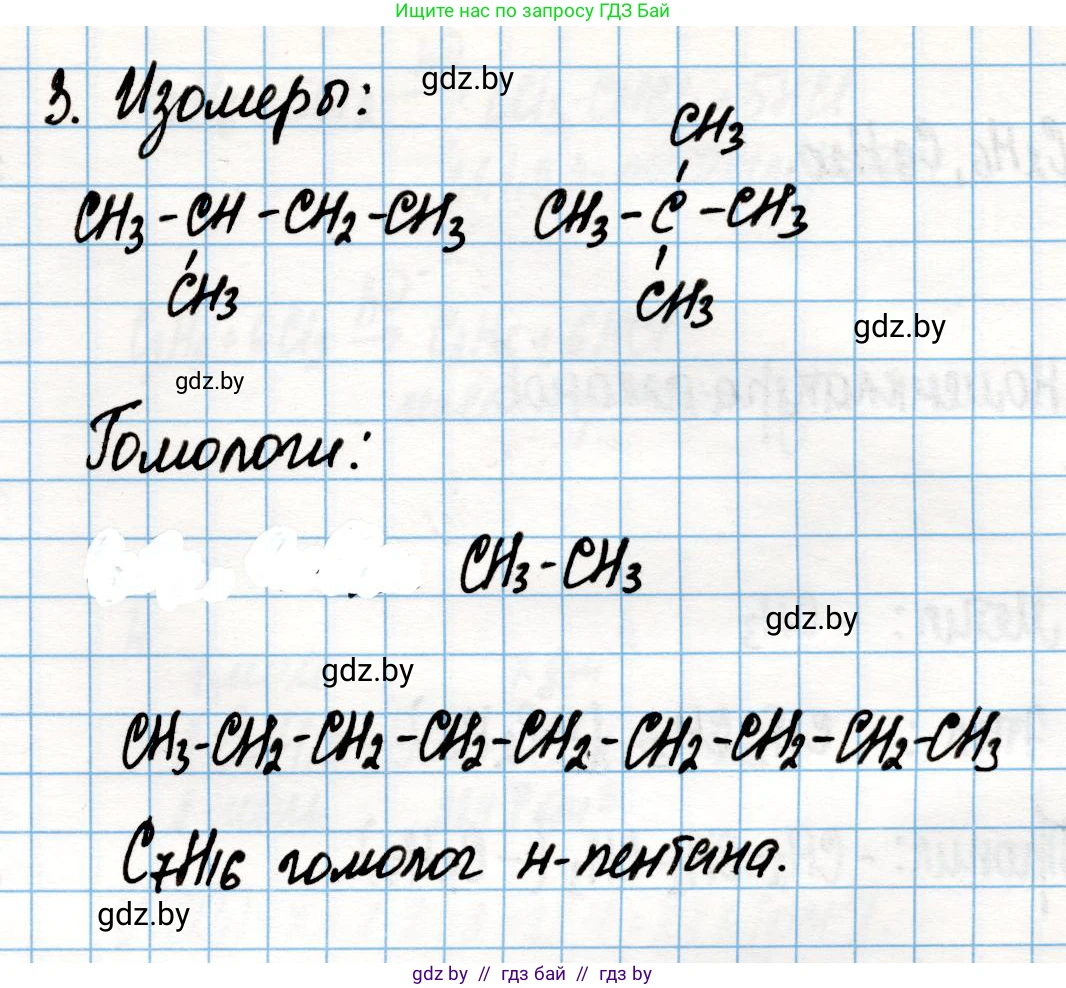 Ищите нас по запросу ГДЗ Бай
3. Изомеры:
gdz.by
CH3
CH3 - CH - CH2 - CH3 CH3 - C - CH3
CH3 CH3
gdz.by
gdz.by
Гомологи:
CH3 - CH3
gdz.by
gdz.by
CH3 - CH2 - CH2 - CH2 - CH2 - CH2 - CH2 - CH2 - CH3
C7H16 гомолог н-пентана.
gdz.by
gdz by // гдз бай // гдз by